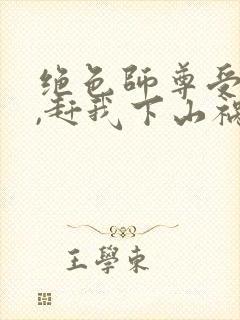 绝色師尊受
,赶我下山禍
王學東